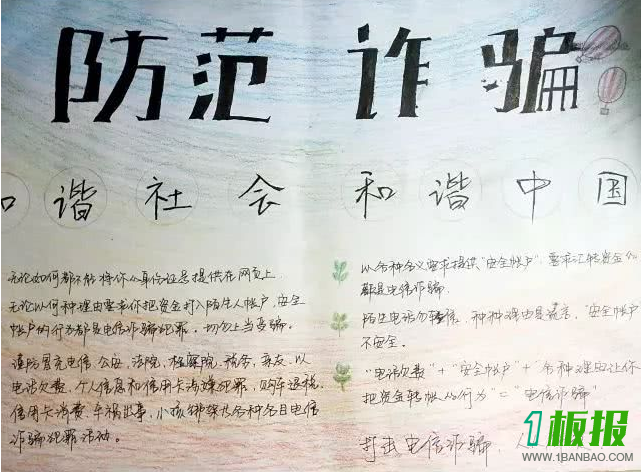 防范诈骗
和谐社会 和谐中国
无论如何都不能将你的身份证号提供在网页上
无论以何种理由要求你把资金打入陌生人帐户,安全
帐户的行为都是电信诈骗犯罪。切勿上当受骗。
谨防冒充电信、公安、法院、检察院、税务、亲友、以
电话欠费、个人信息和信用卡涉嫌犯罪,购车退税、
信用卡消费、车祸出事、小孩绑架等各种名目电信
诈骗犯罪活动。
以各种名义要求提供"安全帐户",要求汇转资金的
都是电信诈骗
陌生电话勿轻信,种种理由是谎言,"安全帐户"
不安全。
"电话欠费"+"安全帐户"+"各种理由让你
把资金转帐的行为"="电信诈骗"
打击电信诈骗
1板报
WWW.1BANBAO.COM